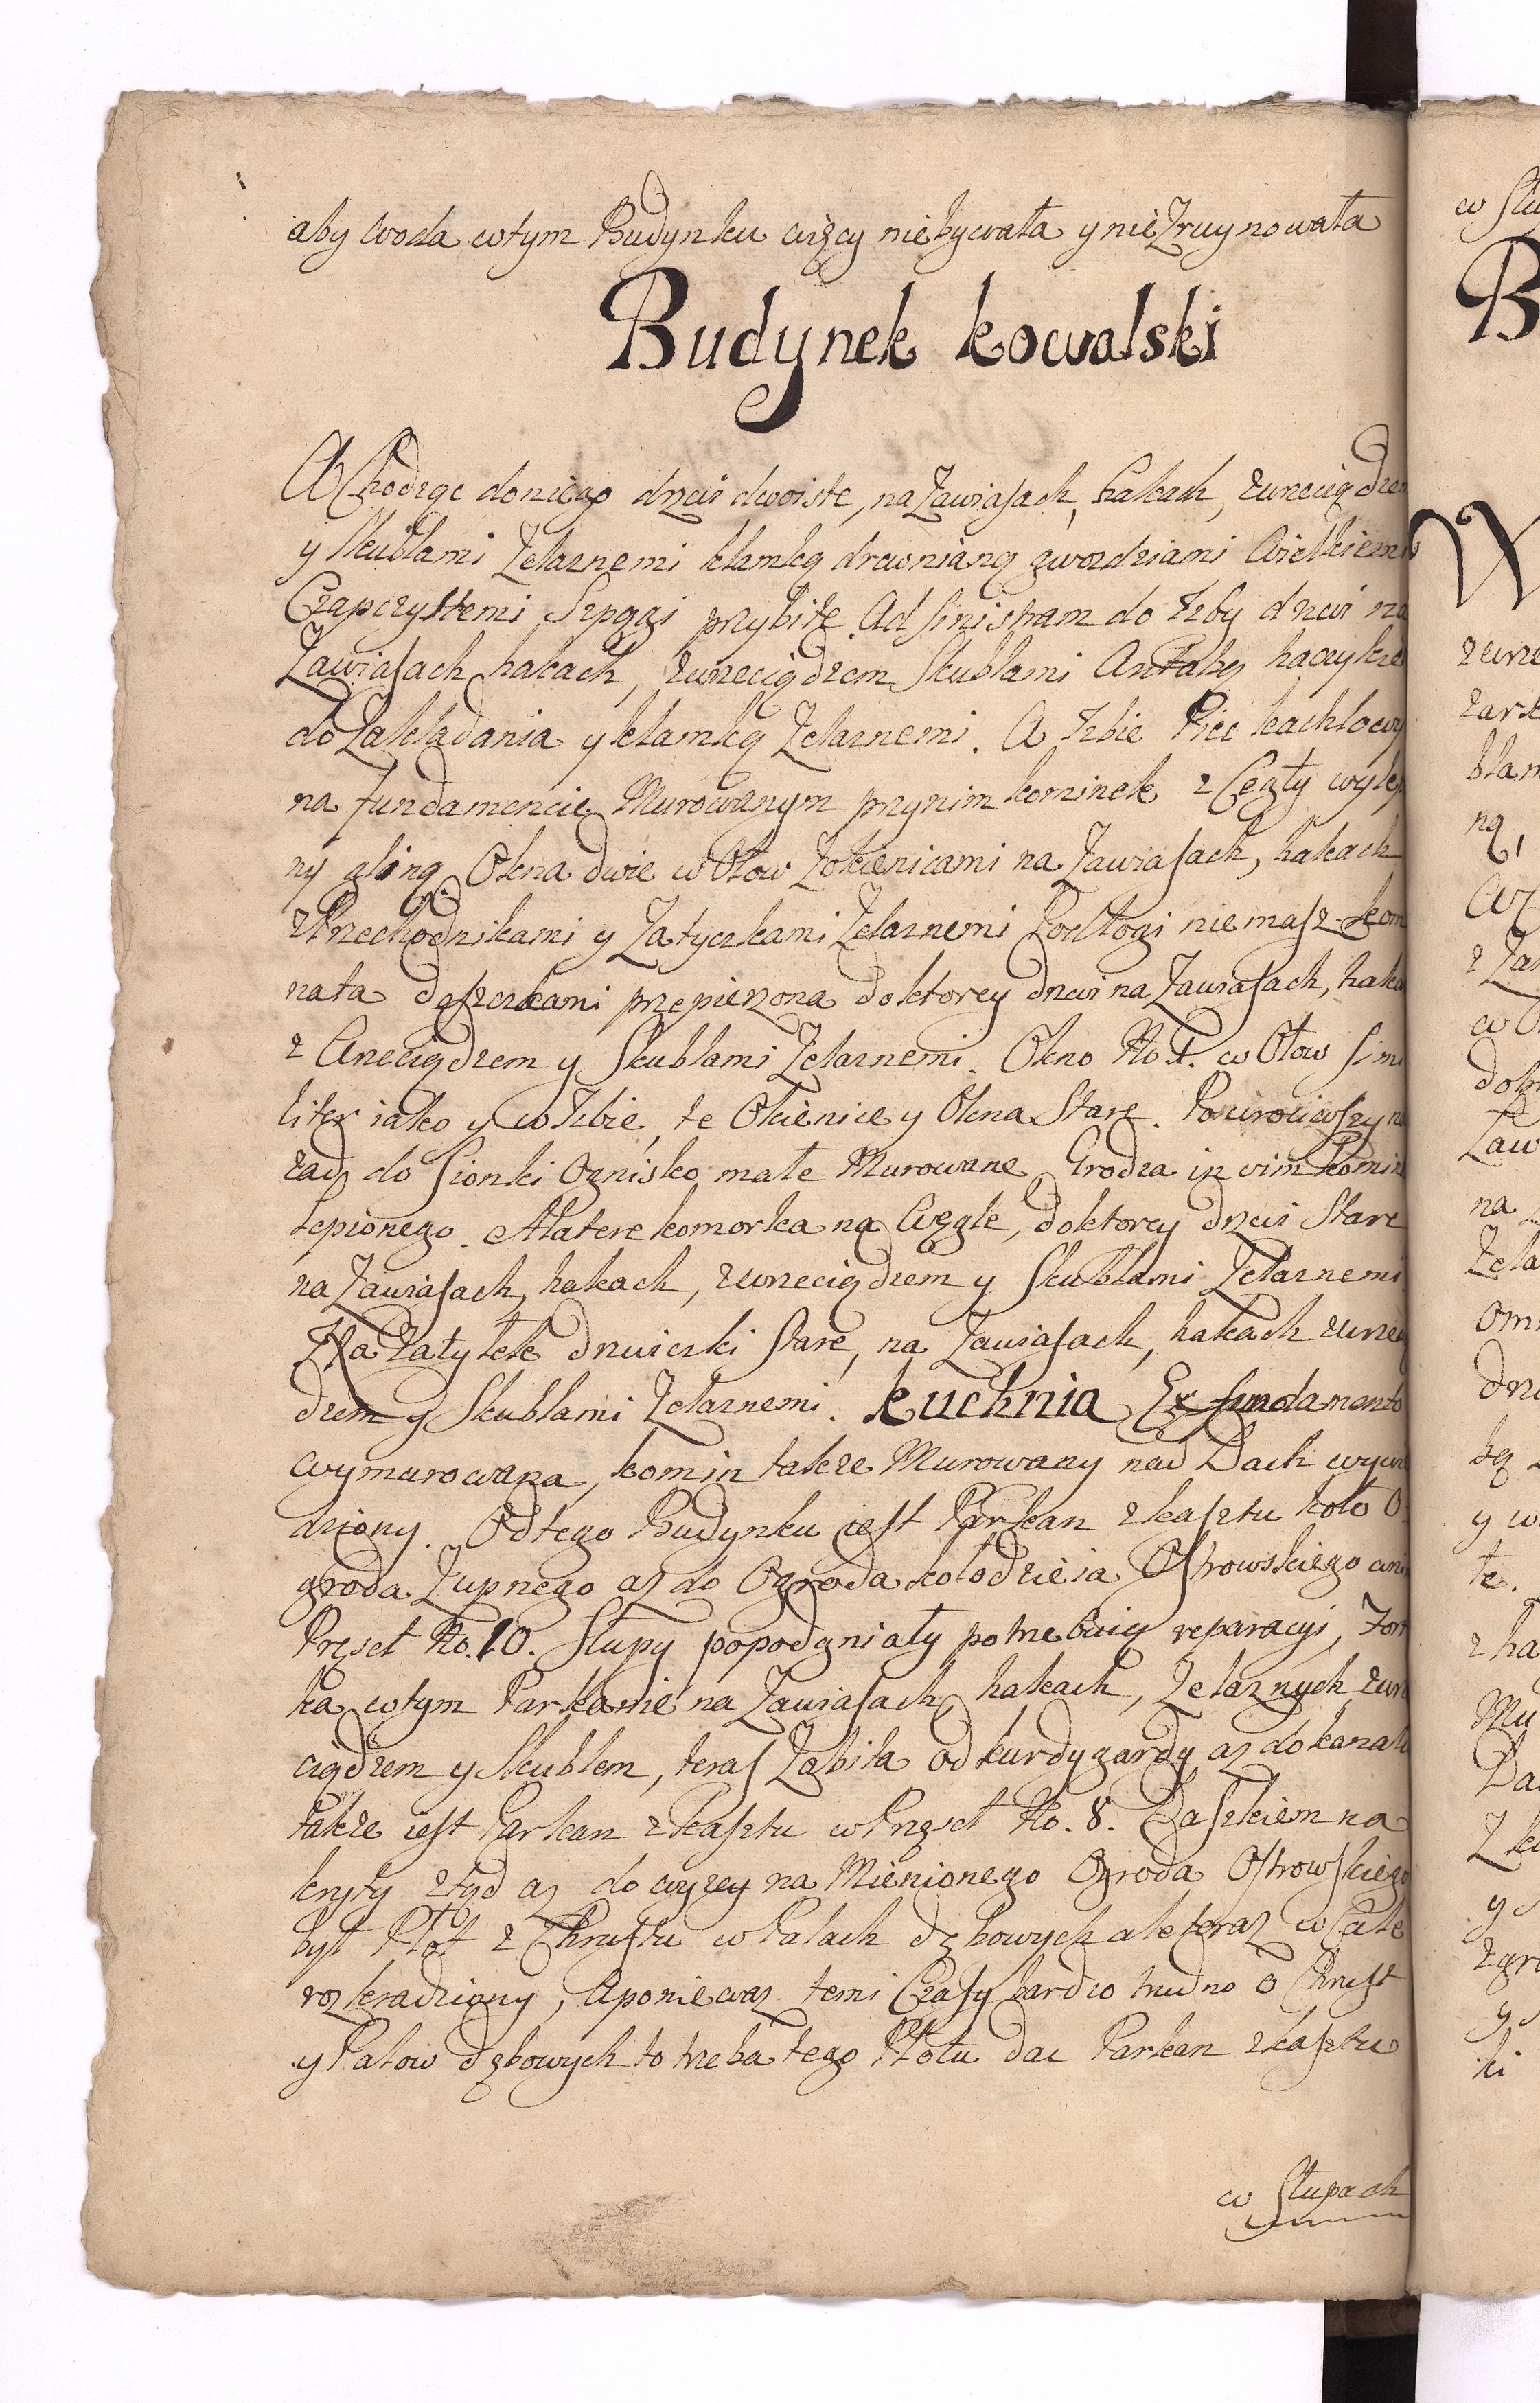 aby woda wtym Budynku więcy niebywała y nie Zruynowała
Budynek kowalski
Wchodząc doniego drzwi dwoiste, na Zawiasach, hakach, zwrzeciądzem
y Skublami Zelaznemi klamką drewnianą gwozdziami Wielkiemi
Czapczystemi Szpągi przybite. Ad sinistram do Izby drzwi na
Zawiasach hakach, zwrzeciądzem Skublami Antabą haczyke
do Zakładania y klamką Zelaznemi. W Izbie Piec kachlowy
na fundamencie Murowanym przynim kominek z Cegły wylep
ny gliną Okna dwie w Ołow Zokienicami na Zawiasach, hakach
zPrzechodnikami y Zatyczkami Zelaznemi Podłogi niemasz kom
nata deszczkami przepierzona doktorey drzwi na Zawiasach, haka
z Wrzeciądzem y Skublami Zelaznemi. Okno No 1. w Ołow simi
liter iako y wIzbie, te Okienice y Okna Stare. Powrociwszy na
zad do Sionki Ognisko małe Murowane Grodza in vim komin
lepionego. Alatere komorka na Węgle, doktorey drzwi Stare
na Zawiasach, hakach, zwrzeciądzem y Skublami Zelaznemi
Na Zatyłek drzwiczki stare, na Zawiasach, hakach zwrzeci
dzem y Skublami Zelaznemi. kuchnia Ex fundamento
wymurowana, komin takze Murowany nad Dach wywi
dziony. Od tego Budynku iest Parkan zkasztu koło O
groda Zupnego az do Ogroda kołodzieia Ostrowskiego
Przseł No. 10. Słupy popodgniały potrzebuią reparacyi, For
ka wtym Parkanie na Zawiasach, hakach, Zelaznych zwrz
ciądzem y Skublem, teras Zabita od kurdygardy az do kanału
takze iest Parkan zkasztu wPrzseł No. 8. Daszkiem na
kryty ztąd az do wyzey na Mienionego Ogroda Ostrowskiego
był Płot z Chrustu w Palach dębowych ale teraz w Cale
rozkradziony, Aponiewaz temi Czasy bardzo trudno o Chrust
y Palow dębowych to trzeba tego Płotu dac Parkan zkasztu
w Słupach